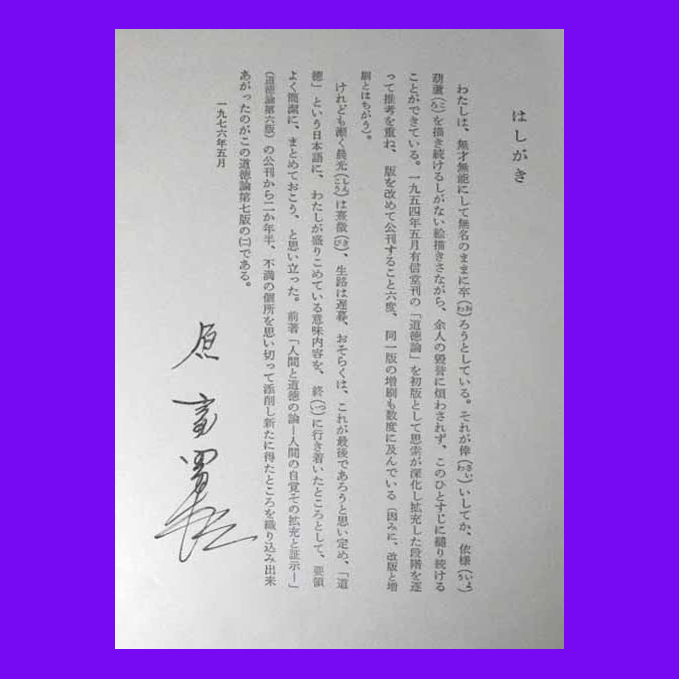 はしがき
わたしは、無才無能にして無名のままに卒(おわ)ろうとしている。それが倖(さいわ)いしてか、依様(いよう)
葫蘆(ころ)を描き続けるしがない絵描きさながら、余人の毀誉に煩わされず、このひとすじに縋り続ける
ことができている。一九五四年五月有信堂刊の「道徳論」を初版として思索が深化し拡充した段階を逐
って推考を重ね、版を改めて公刊すること六度、同一版の増刷も数度に及んでいる（因みに、改版と増
刷とはちがう）。
けれども漸く晨光(しんこう)は熹微(きび)、生路は遅暮、おそらくは、これが最後であろうと思い定め、「道
徳」という日本語に、わたしが盛りこめている意味内容を、終(つい)に行き着いたところとして、要領
よく簡潔に、まとめておこう、と思い立った。前著「人間と道徳の論―人間の自覚その拡充と証示―」
（道徳論第六版）の公刊から二か年半、不満の個所を思い切って添削し新たに得たところを織り込み出来
あがったのがこの道徳論第七版の(二)である。
一九七六年五月
原